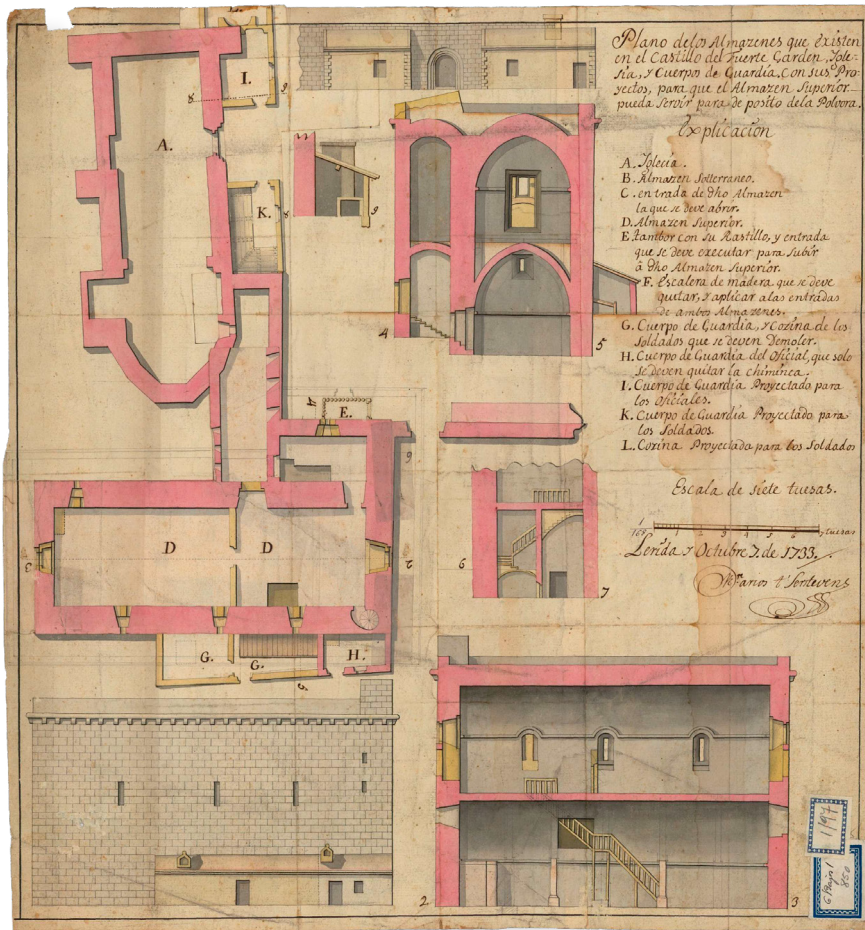 Plano de los Almazenes que existen
en el Castillo del fuerte Garden, Igle-
sia, y Cuerpos de Guardia, Con sus Pro-
yectos, para que el Almazen Superior
pueda servir para de posito dela Polvora.
Explicacion
A. Iglecia.
B. Almazen Sotterraneo.
C. entrada de dho Almazen
la que se deve abrir.
D. Almazen Superior.
E. tambor con su Rastillo, y entrada
que se deve executar para subir
à dho Almazen Superior.
F. Escalera de madera que se deve
quitar, y aplicar a las entradas
de ambos Almazenes.
G. Cuerpo de Guardia, y Cozina de los
Soldados que se deven Demoler.
H. Cuerpo de Guardia del Oficial, que solo
se deven quitar la chiminea.
I. Cuerpo de Guardia Proyectado para
los Oficiales.
K. Cuerpo de Guardia Proyectado para
los Soldados
L. Cozina Proyectada para los Soldados
Escala de siete tuesas.
1 2 3 4 5 6 7 tuesas
Lerida y Octubre 7. de 1733.
A.
I.
K.
8
9
8
9
4
5
E.
4
6
D
D
3
2
G.
G.
H.
5
6
7
2
3
1/97
850